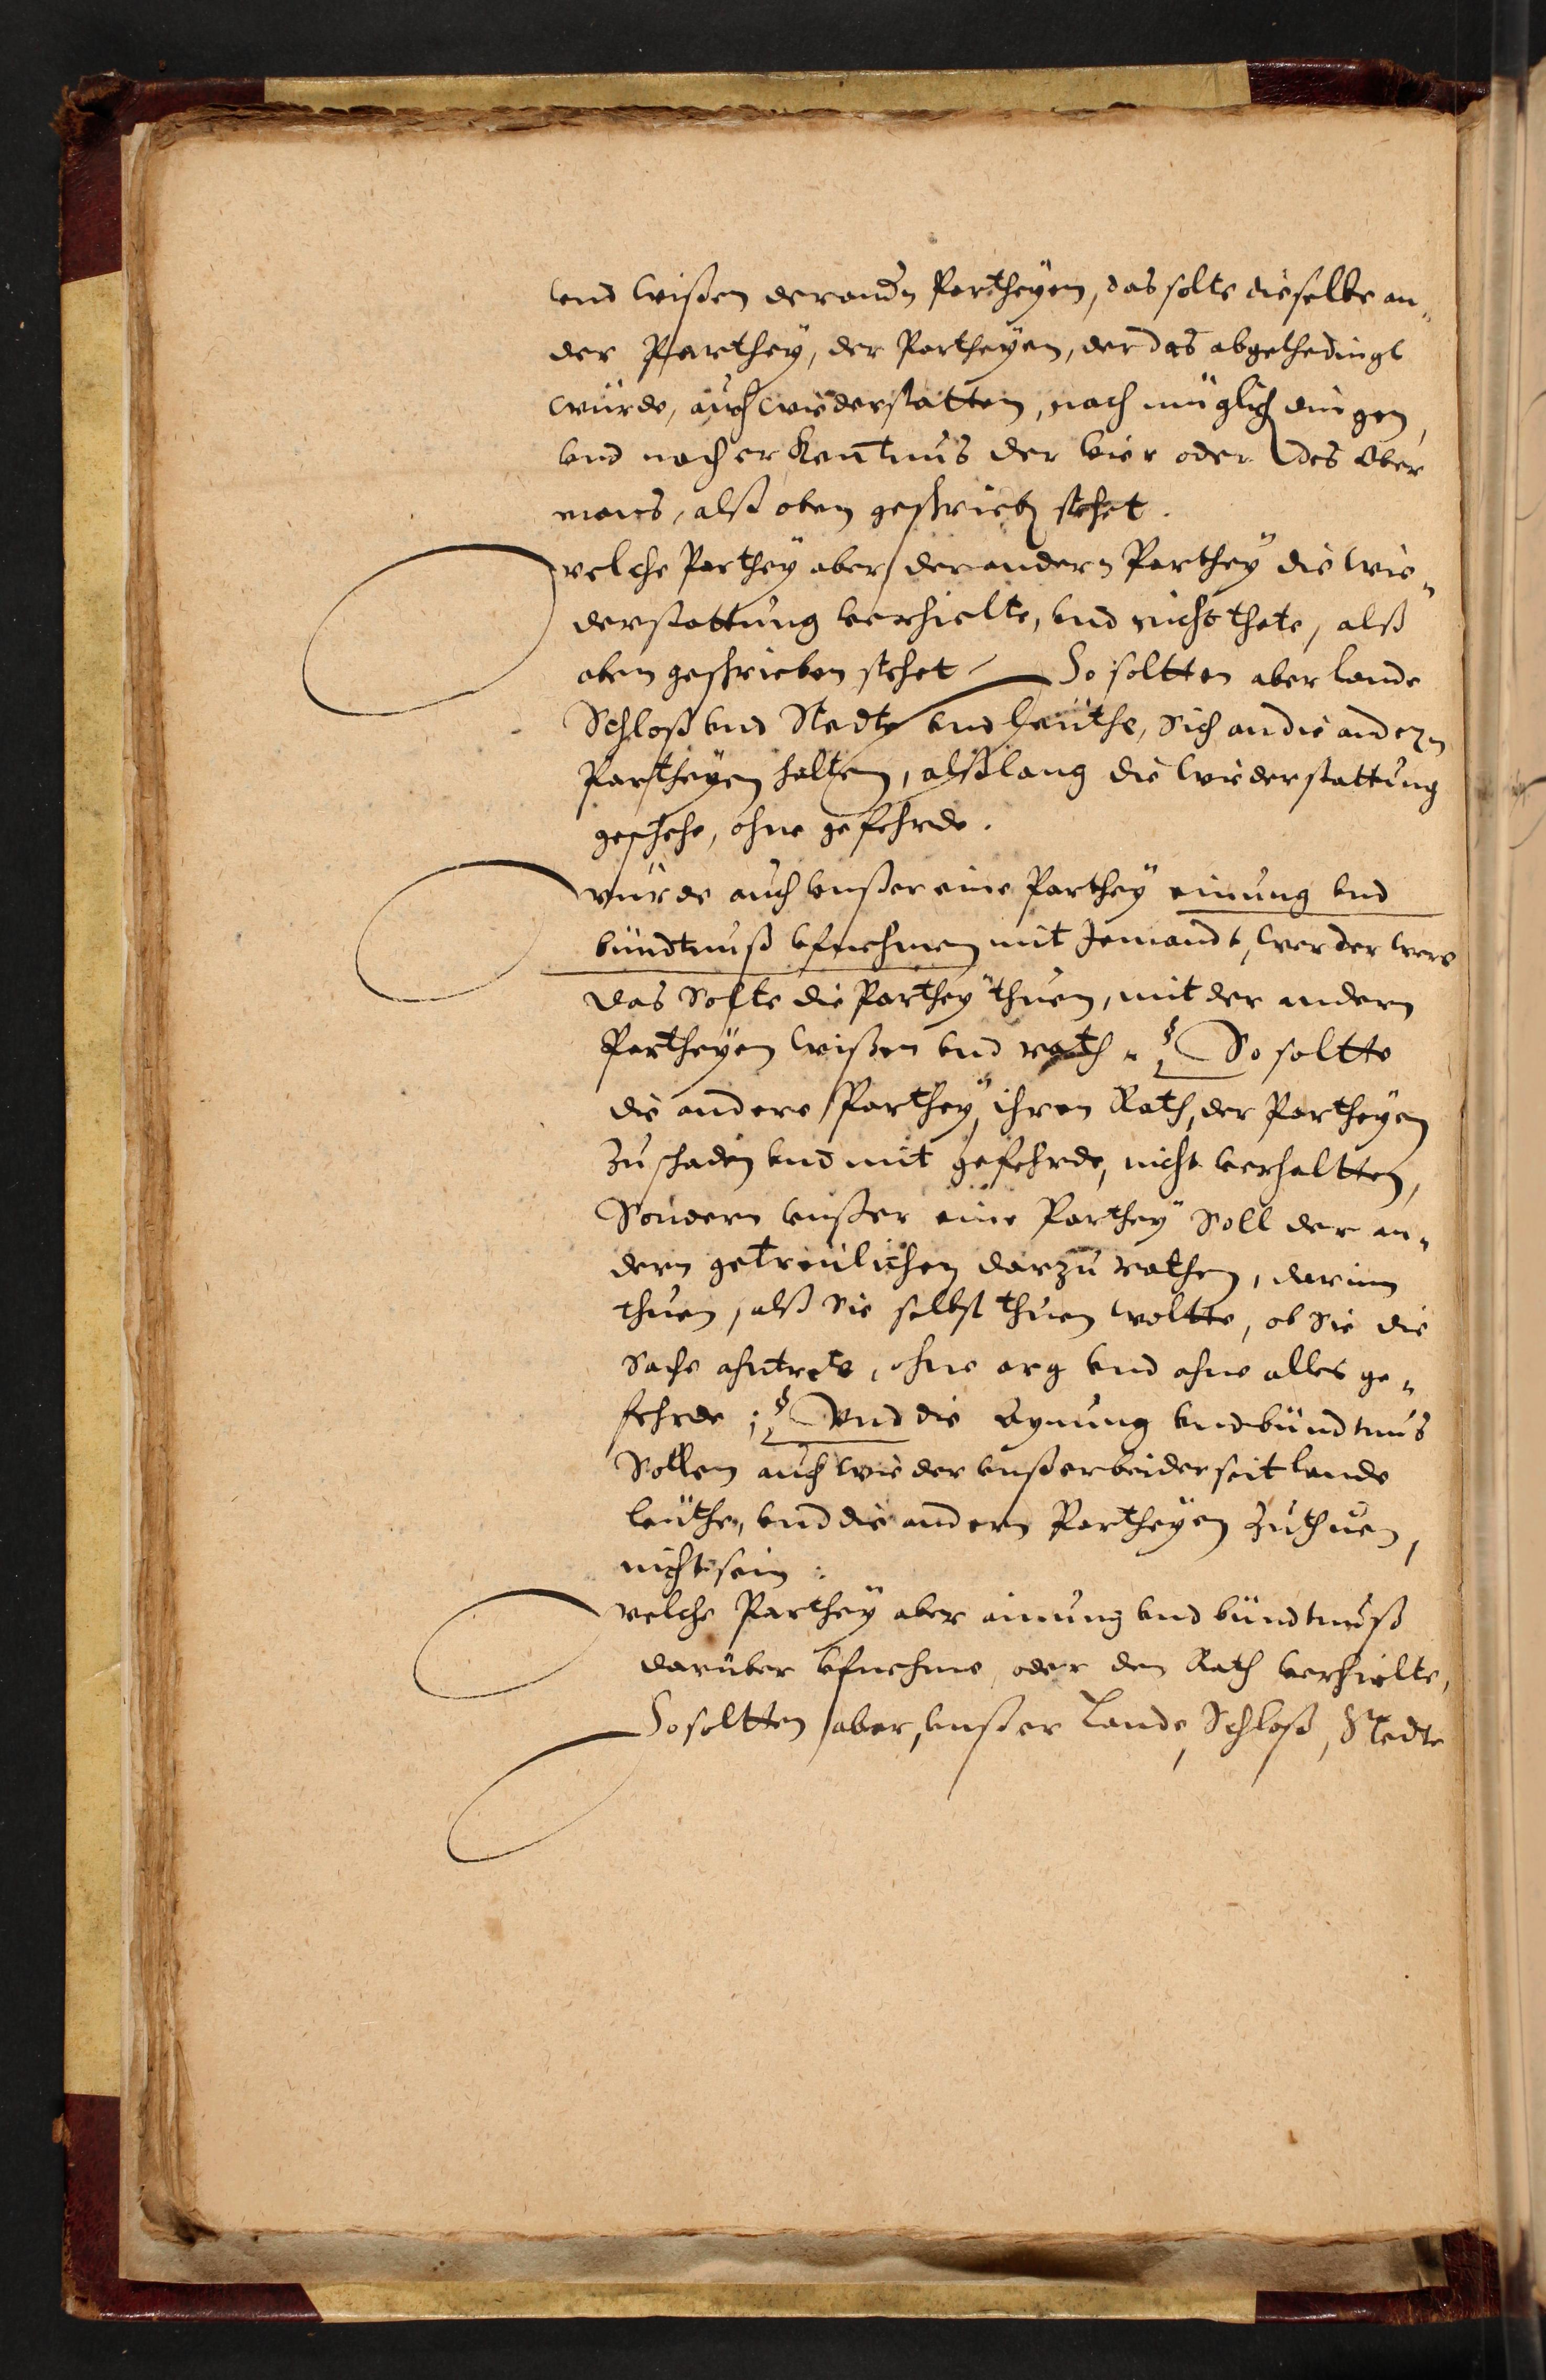 vnd wißen der andn Partheyen, das solte dieselbe an„
der Parthey, der Partheyen, der das abgethedingt
würde, auch wiederstatten, nach müglich dingen,
vnd nach erkentnus der vier oder des Ober
mans, alß oben geschrieb stehet.
welche Parthey aber der andern Parthey die wie„
derstattung verhielte, vnd nicht thete, alß
oben geschrieben stehet So soltten aber lande
Schloß vnd Stedte vnd leuthe, Sich an die andern
Partheyen halten, alßlang die wiederstattung
geschehe, ohne gefehrde.
würde auch vnßer eine Parthey einung vnd
bündtnuß vfnehmen mit Jemandt, wer der were
das Solte die Parthey thuen, mit der andern
Partheyen wißen vnd rath. So soltte
die andere Parthey, ihren Rath, der Partheyen
zu schaden vnd mit gefehrde, nicht verhaltten,
Sondern vnßer eine Parthey Soll der an„
dern getreulichen darzu rathen, darinn
thuen, alß Sie selbst thuen woltte, ob Sie die
Sache ahntrete, ohne arg vnd ohne alles ge„
fehrde; Vnd die Eynung vnd bündtnus
Sollen auch wieder vnßer beiderseit lande
leuthe, vnd die andern Partheyen zuthuen,
nicht sein:
welche Parthey aber einung vnd bündtnuß
darüber vfnehme, oder den Rath verhielte,
So soltten aber, vnßer Lande, Schloß, Stedte